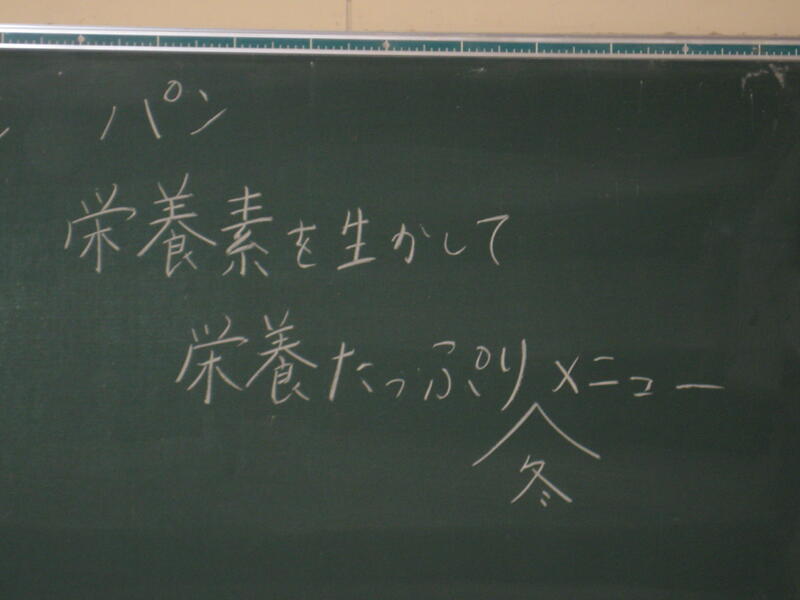 パン
栄養素を生かして
栄養たっぷりメニュー
冬